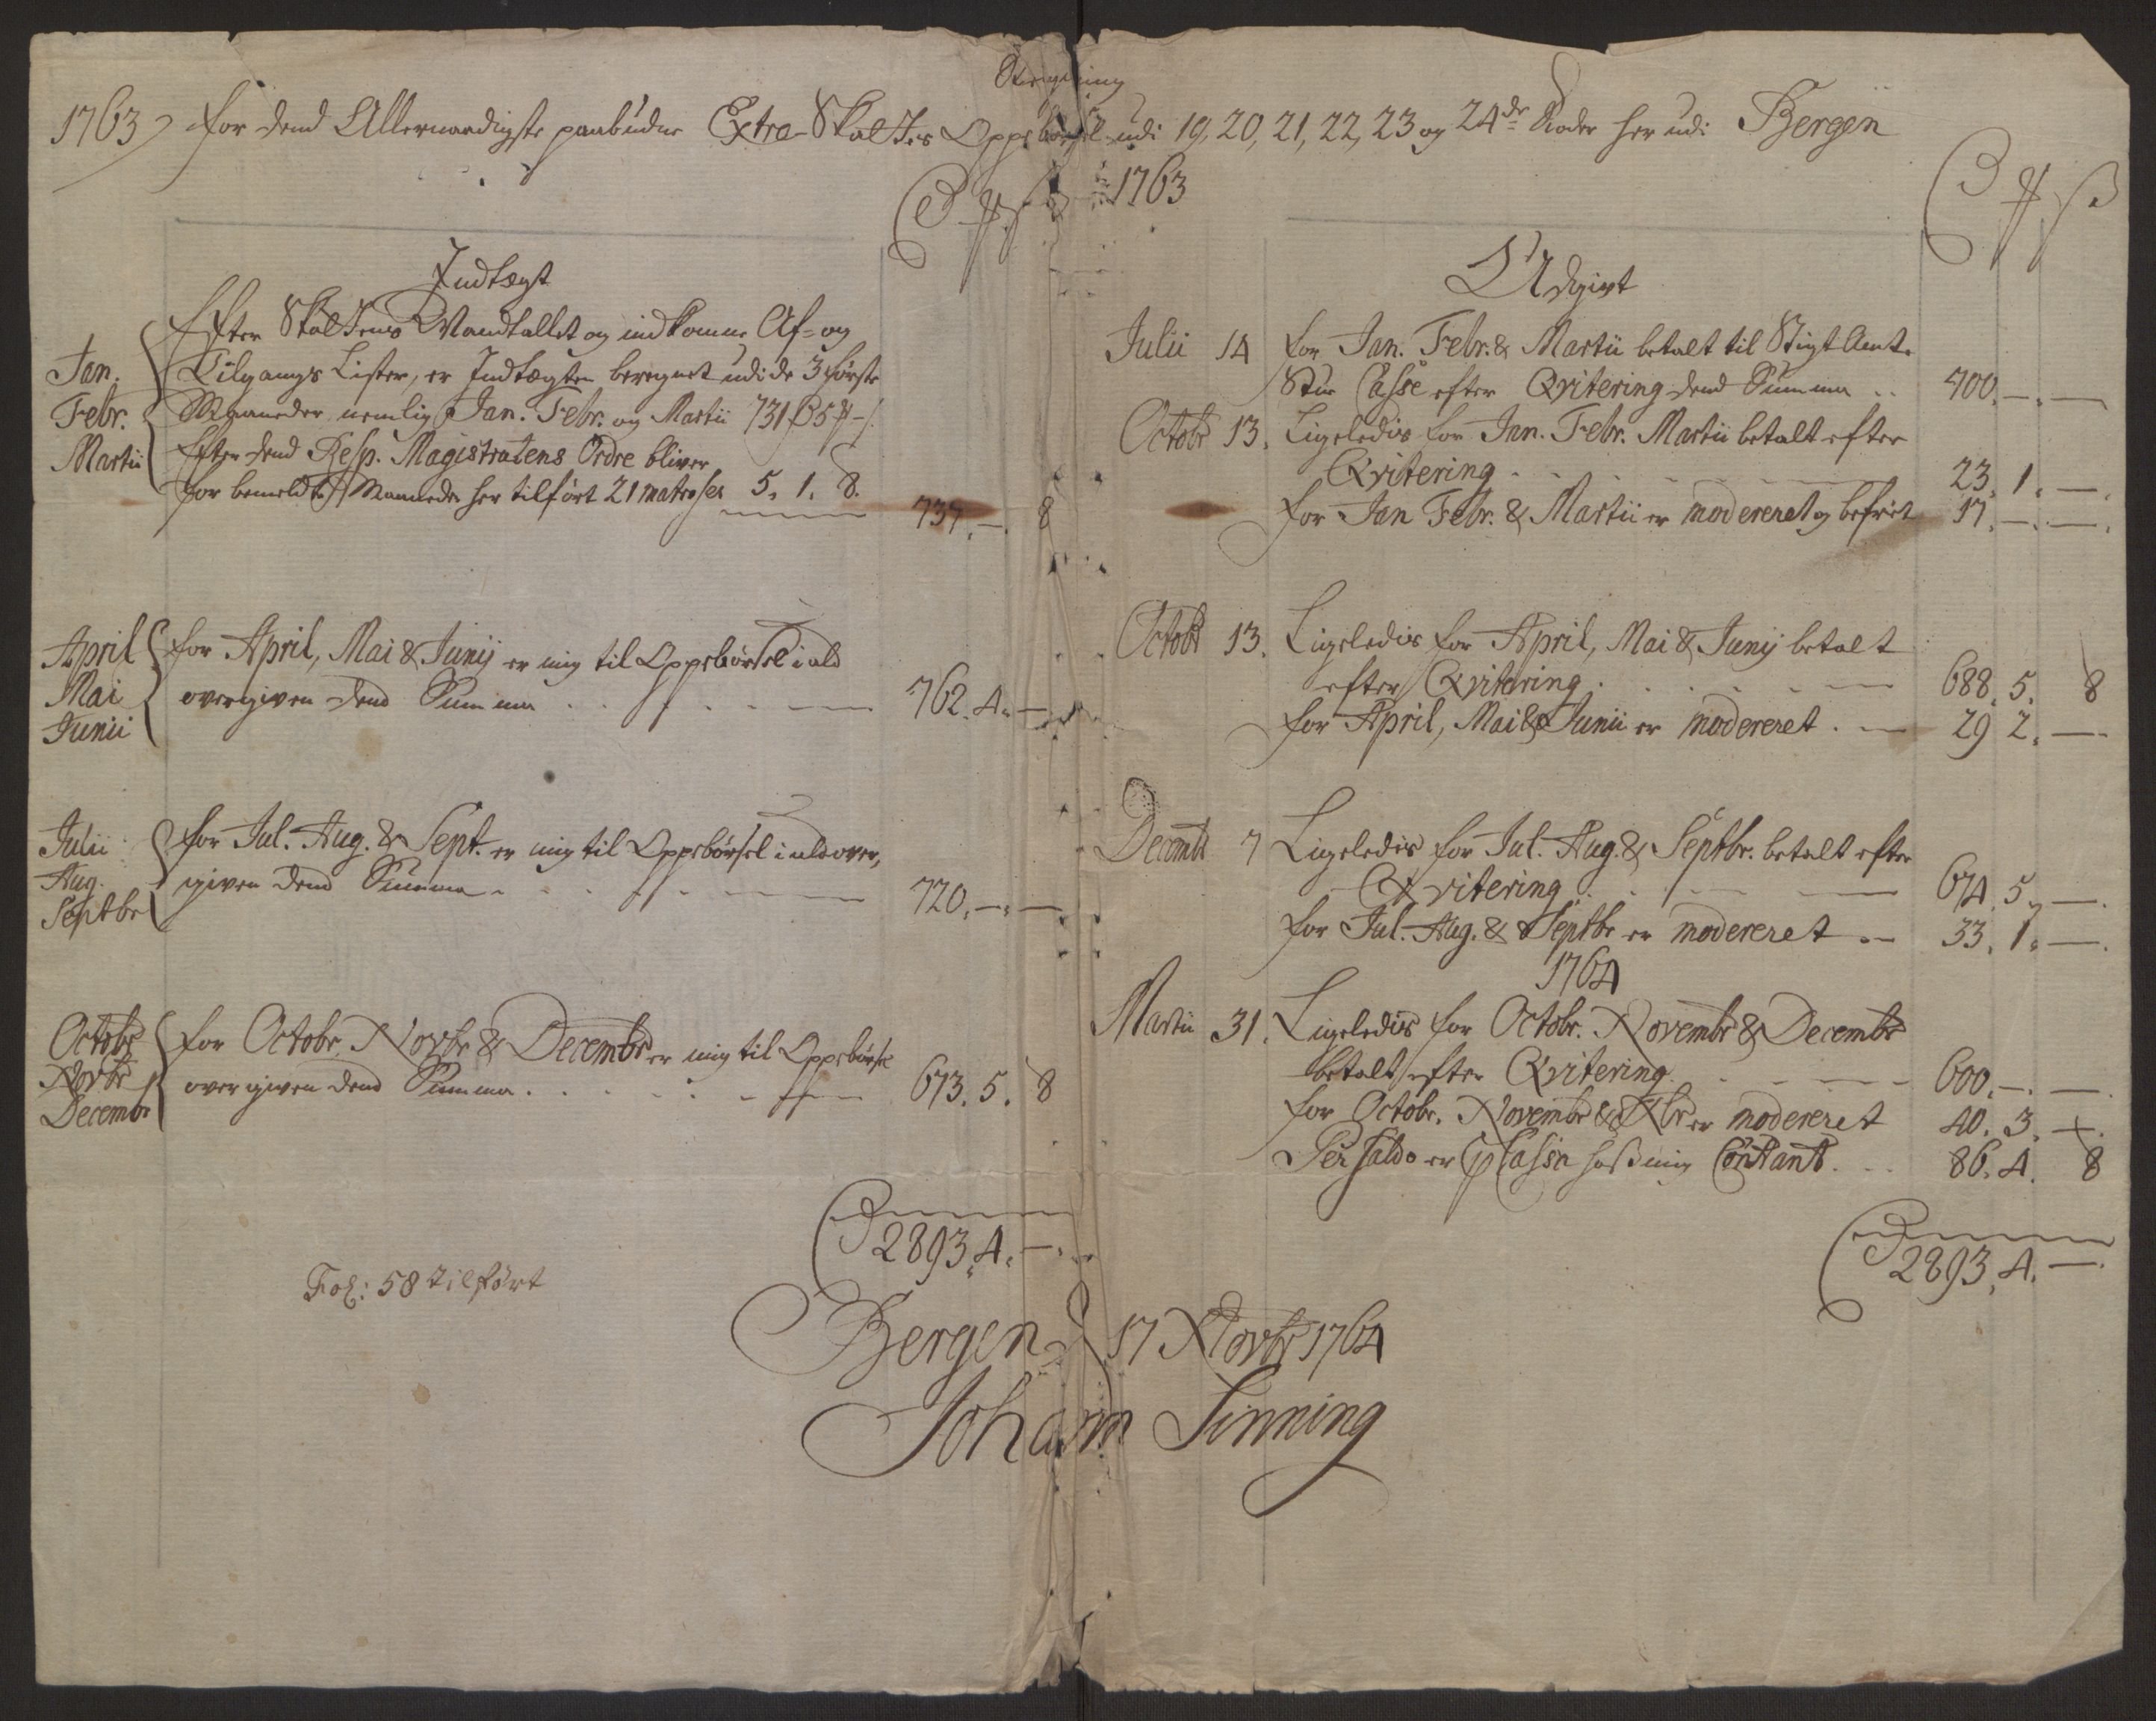 Regning
1763 for dend Allernaadigste paabudne Extra-Skattes Oppebørsel udi 19, 20, 21, 22, 23 og 24de Roder her udi Bergen
1763
Indtægt
Jan.
Febr.
Martii
Efter Skattens Mandtallet og indkomne Af- og
Tilgangs Lister, er Indtægten beregnet udi de 3 første
Maaneder nemlig Jan. Febr. og Martii 731 5 -
Efter dend Resp. Magistratens Ordre bliver
for bemeldte Maaneder her tilført 21 matroser 5. 1. 8.
737. — 8
April
Mai
Junii
for April, Mai & Junij er mig til Oppebørsel i alt
overgiven dend Summa . . . 762. 4. —
Julii
Aug.
Septbr
for Jul. Aug. & Sept. er mig til Oppebørsel i alt over,
given dend Summa . . . 720. —. —
Octobr
Novbr
Decembr
for Octobr. Novbr & Decembr er mig til Oppebørsel
overgiven dend Summa . . . 673. 5. 8
2893. 4. —
Fol: 58 tilført
Udgivt
Julii 14 for Jan. Febr. & Martii betalt til Stigt Amt.
Stue Casse efter Qvitering dend Summa .. 700. —. —
Octobr 13. Ligeledis for Jan. Febr. Martii betalt efter
Qvitering . . . 23. 1. —.
for Jan Febr. & Martii er modereret og befriet 17. —. —.
Octobr 13. Ligeledis for April, Mai & Junij betalt
efter Qvitering . . . 688. 5. 8
for April, Mai & Junii er modereret . — 29 2. —
Decembr 7 Ligeledis for Jul. Aug. & Septbr. betalt efter
Qvitering . . . 674. 5. —.
for Jul. Aug. & Septbr er modereret .— 33. 1. —.
1764
Martii 31. Ligeledis for Octobr. Novembr & Decembr
betalt efter Qvitering . . . 600. —. —
for Octobr. Novembr & Xbr er modereret 40. 3. —.
Per Saldo er p Cassa hos mig Contant . . . 86. 4. 8
2893. 4. —.
Bergen d 17 Novbr 1764
Johann Sinning